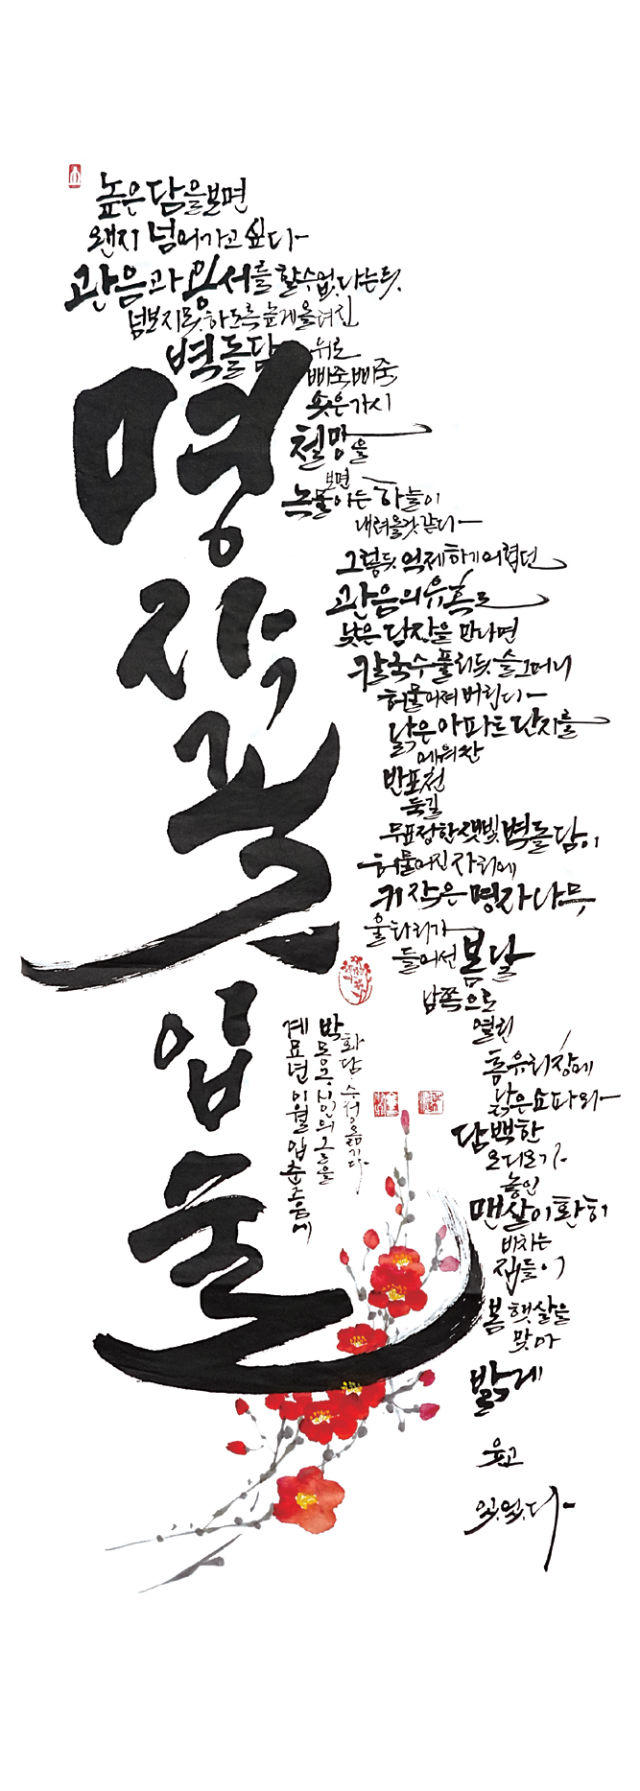 높은 담을 보면
왠지 넘어가고 싶다
관음과 용서를 할 수 없다는 듯,
넘보지 못하도록 높게 올려진
벽돌담 위로
삐죽삐죽
솟은 가시
철망을
보면
하늘이
내려올 것 같다
그렇듯 억제하기 어렵던
관음의 유혹도
낮은 담장을 만나면
칼국수 풀리듯 슬그머니
허물어져 버린다
낡은 아파트 단지를
에워싼
반포천
둑길
무표정한 잿빛 벽돌담이
허물어진 자리에
키 작은 명자나무
울타리가
들어선 봄날
남쪽으로
열린
통유리창에
낡은 소파와
담백한
오디오가
놓인
맨살이 환히
비치는
집들이
봄 햇살을
맞아
밝게
웃고
있었다
명
자
꽃
입
술
시인의 글을
계묘년 이월 입춘즈음에